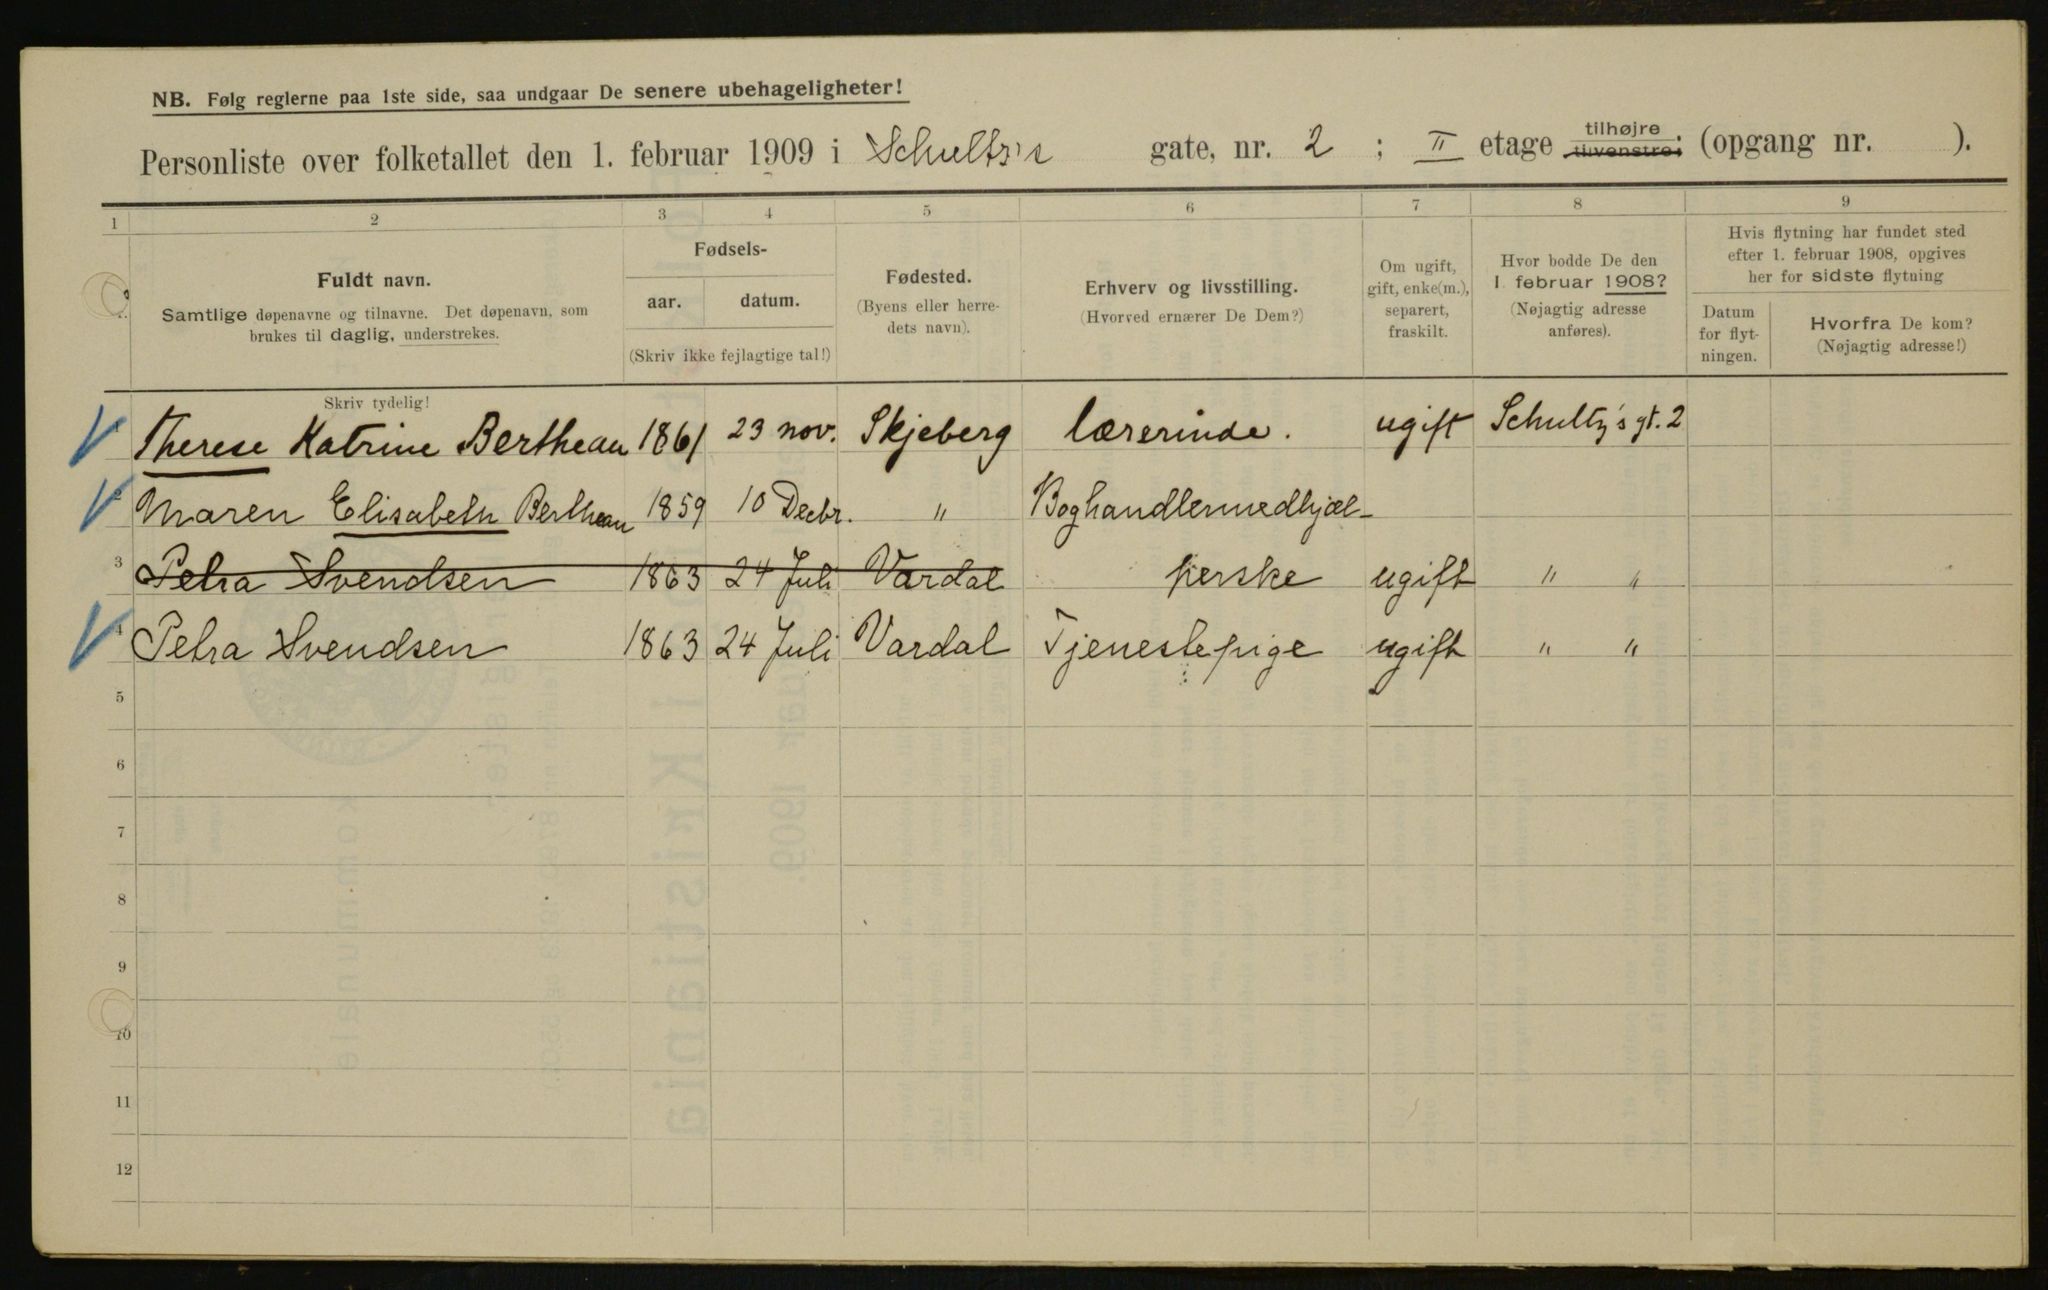 NB. Følg reglerne paa 1ste side, saa undgaar De senere ubehageligheter!
Personliste over folketallet den 1. februar 1909 i Schultz's gate, nr. 2 ; II etage tilhøjre tilvenstre; (opgang nr. ).
1 2 3 4 5 6 7 8 9
Fuldt navn.
Samtlige døpenavne og tilnavne. Det døpenavn, som
brukes til daglig, understrekes.
Skriv tydelig!
Fødsels-
aar. datum.
(Skriv ikke fejlagtige tal!)
Fødested.
(Byens eller herre-
dets navn).
Erhverv og livsstilling.
(Hvorved ernærer De Dem?)
Om ugift,
gift, enke(m.),
separert,
fraskilt.
Hvor bodde De den
1. februar 1908?
(Nøjagtig adresse
anføres).
Hvis flytning har fundet sted
efter 1. februar 1908, opgives
her for sidste flytning
Datum
for flyt-
ningen.
Hvorfra De kom?
(Nøjagtig adresse!)
Therese Katrine Bertheau 1861 23 nov. Skjeberg lærerinde. ugift Schultz's gt. 2
2 Maren Elisabeth Bertheau 1859 10 Decbr. " Boghandlermedhjæl-
3 Petra Svendsen 1863 24 Juli Vardal perske ugift " "
4 Petra Svendsen 1863 24 Juli Vardal Tjenestepige ugift " "
5
6
7
8
9
10
11
12